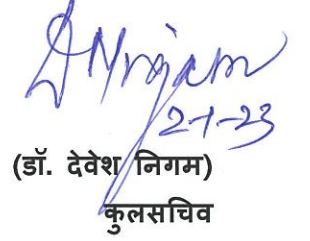 D Nigam
2-1-23
(डॉ. देवेश निगम)
कुलसचिव